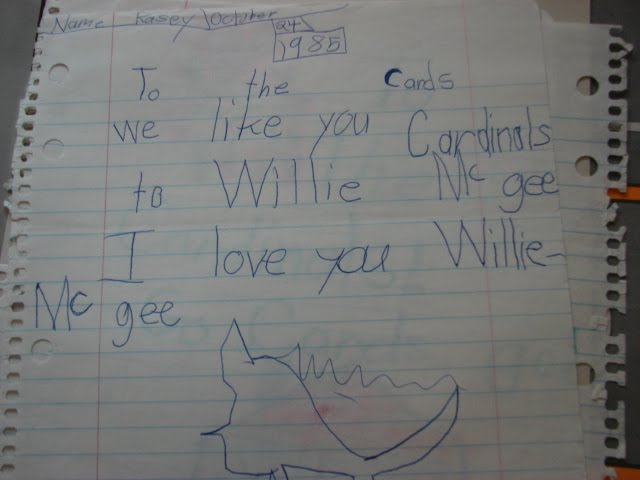 Name Kasey October 24
1985
To the Cards
we like you Cardinals
to Willie Mc gee
I love you Willie-
Mc gee